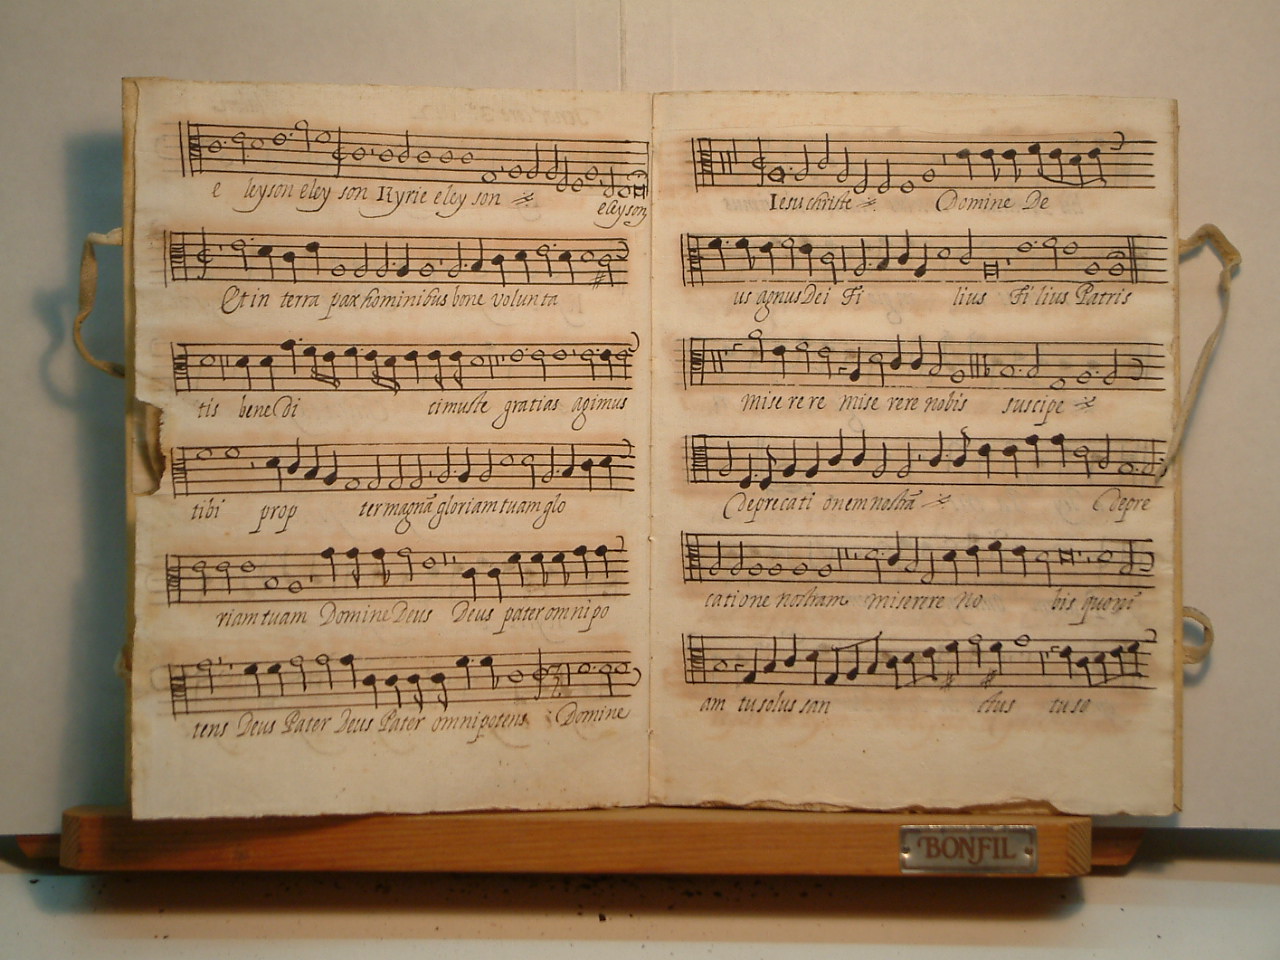 e leyson eley son Kyrie eley son
eleyson
Et in terra pax hominibus bone volunta
tis bene di cimuste gratias agimus
tibi prop ter magnã gloriam tuam glo
riam tuam Domine Deus Deus pater omnipo
tens Deus Pater Deus Pater omnipotens Domine
Iesu christe Domine De
us agnus Dei Fi lius Fi lius Patris
mise re re mise rere nobis suscipe
deprecati onem nostrã depre
catione nostram miserere no bis quoni
am tu solus san ctus tu so
BONFIL